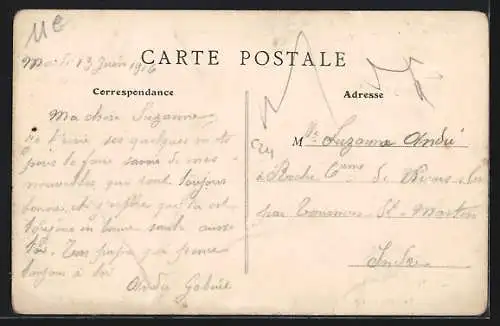 11e
Mardi 13 Juin 1916
CARTE POSTALE
Correspondance
Adresse
Ma chère Suzanne
Je t'écrie ses quelques mots
pour te faire savoir de mes
nouvelles qui sont toujours
bonnes, et j'espère que la est
toujours en bonne santé aussi
toi. Ton papa qui pense
toujours à toi
André Gabriel
Mlle Suzanne André
à Roche Cne de
par Tournon St-Martin
Indre